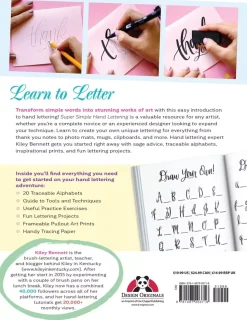 Learn to Letter
Transform simple words into stunning works of art with this easy introduction
to hand lettering! Super Simple Hand Lettering is a valuable resource for any artist,
whether you're a complete novice or an experienced designer looking to expand
your technique. Learn to create your own unique lettering for everything from
thank you notes to photo mats, mugs, clipboards, and more. Hand lettering expert
Kiley Bennett gets you started right away with sage advice, traceable alphabets,
inspirational prints, and fun lettering projects.
Inside you'll find everything you need
to get started on your hand lettering
adventure:
20 Traceable Alphabets
Guide to Tools and Techniques
Useful Practice Exercises
Fun Lettering Projects
Frameable Pullout Art Prints
Handy Tracing Paper
Draw Your Own!
Kiley Bennett is the
brush-lettering artist, teacher,
and blogger behind Kiley in Kentucky
(www.kileyinkentucky.com). After
getting her start in 2015 by experimenting
with a couple of brush pens on her
lunch break, Kiley now has a combined
40,000 followers across all of her
platforms, and her hand-lettering
tutorials get 20,000+
monthly views.
DESIGN ORIGINALS